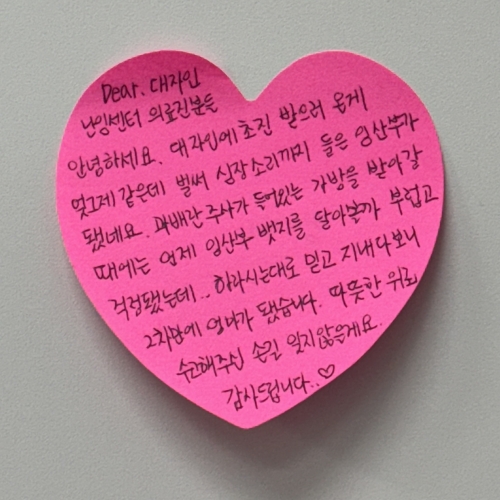 Dear. 대자인
난임센터 의료진분들
안녕하세요. 대자인에 초진 받으러 온게
엊그제 같은데 벌써 심장소리까지 들은 임산부가
됐네요. 과배란 주사가 들어있는 가방을 받아갈
때에는 언제 임산부 뱃지를 달아볼까 부럽고
걱정됐는데.. 하라시는대로 믿고 지내다보니
2차만에 엄마가 됐습니다. 따뜻한 위로
수고해주신 손길 잊지않을게요.
감사드립니다..♡